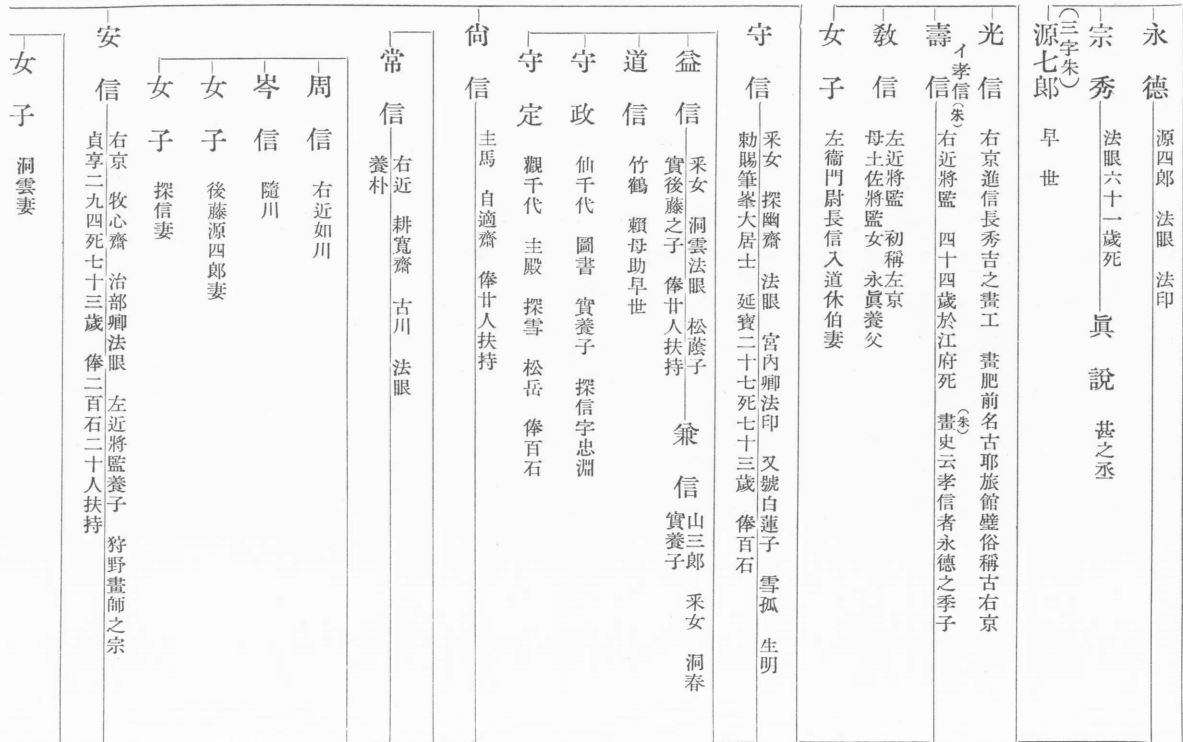 永德 源四郎 法眼 法印
宗秀 法眼六十一歲死
眞說 甚之丞
(三字朱)
源七郎 早世
光信 右京進信長秀吉之畫工 畫肥前名古耶旅館璧俗稱古右京
壽信 右近將監 四十四歲於江府死 畫史云孝信者永德之季子
イ孝信(朱)
(朱)
敎信 左近將監 初稱左京
母土佐將監女 永眞養父
女子 左衞門尉長信入道休伯妻
守信 釆女 探幽齋 法眼 宮內卿法印 又號白蓮子 雪孤 生明
勅賜筆峯大居士 延寶二十七死七十三歲 俸百石
益信 釆女 洞雲法眼 松蔭子
實後藤之子 俸廿人扶持
兼信 山三郎 釆女 洞春
實養子
道信 竹鶴 賴母助早世
守政 仙千代 圖書 實養子 探信字忠淵
守定 觀千代 主殿 探雪 松岳 俸百石
尙信 主馬 自適齋 俸廿人扶持
常信 右近 耕寬齋 古川 法眼
養朴
周信 右近如川
岑信 隨川
女子 後藤源四郎妻
女子 探信妻
安信 右京 牧心齋 治部卿法眼 左近將監養子 狩野畫師之宗
貞享二九四死七十三歲 俸二百石二十人扶持
女子 洞雲妻